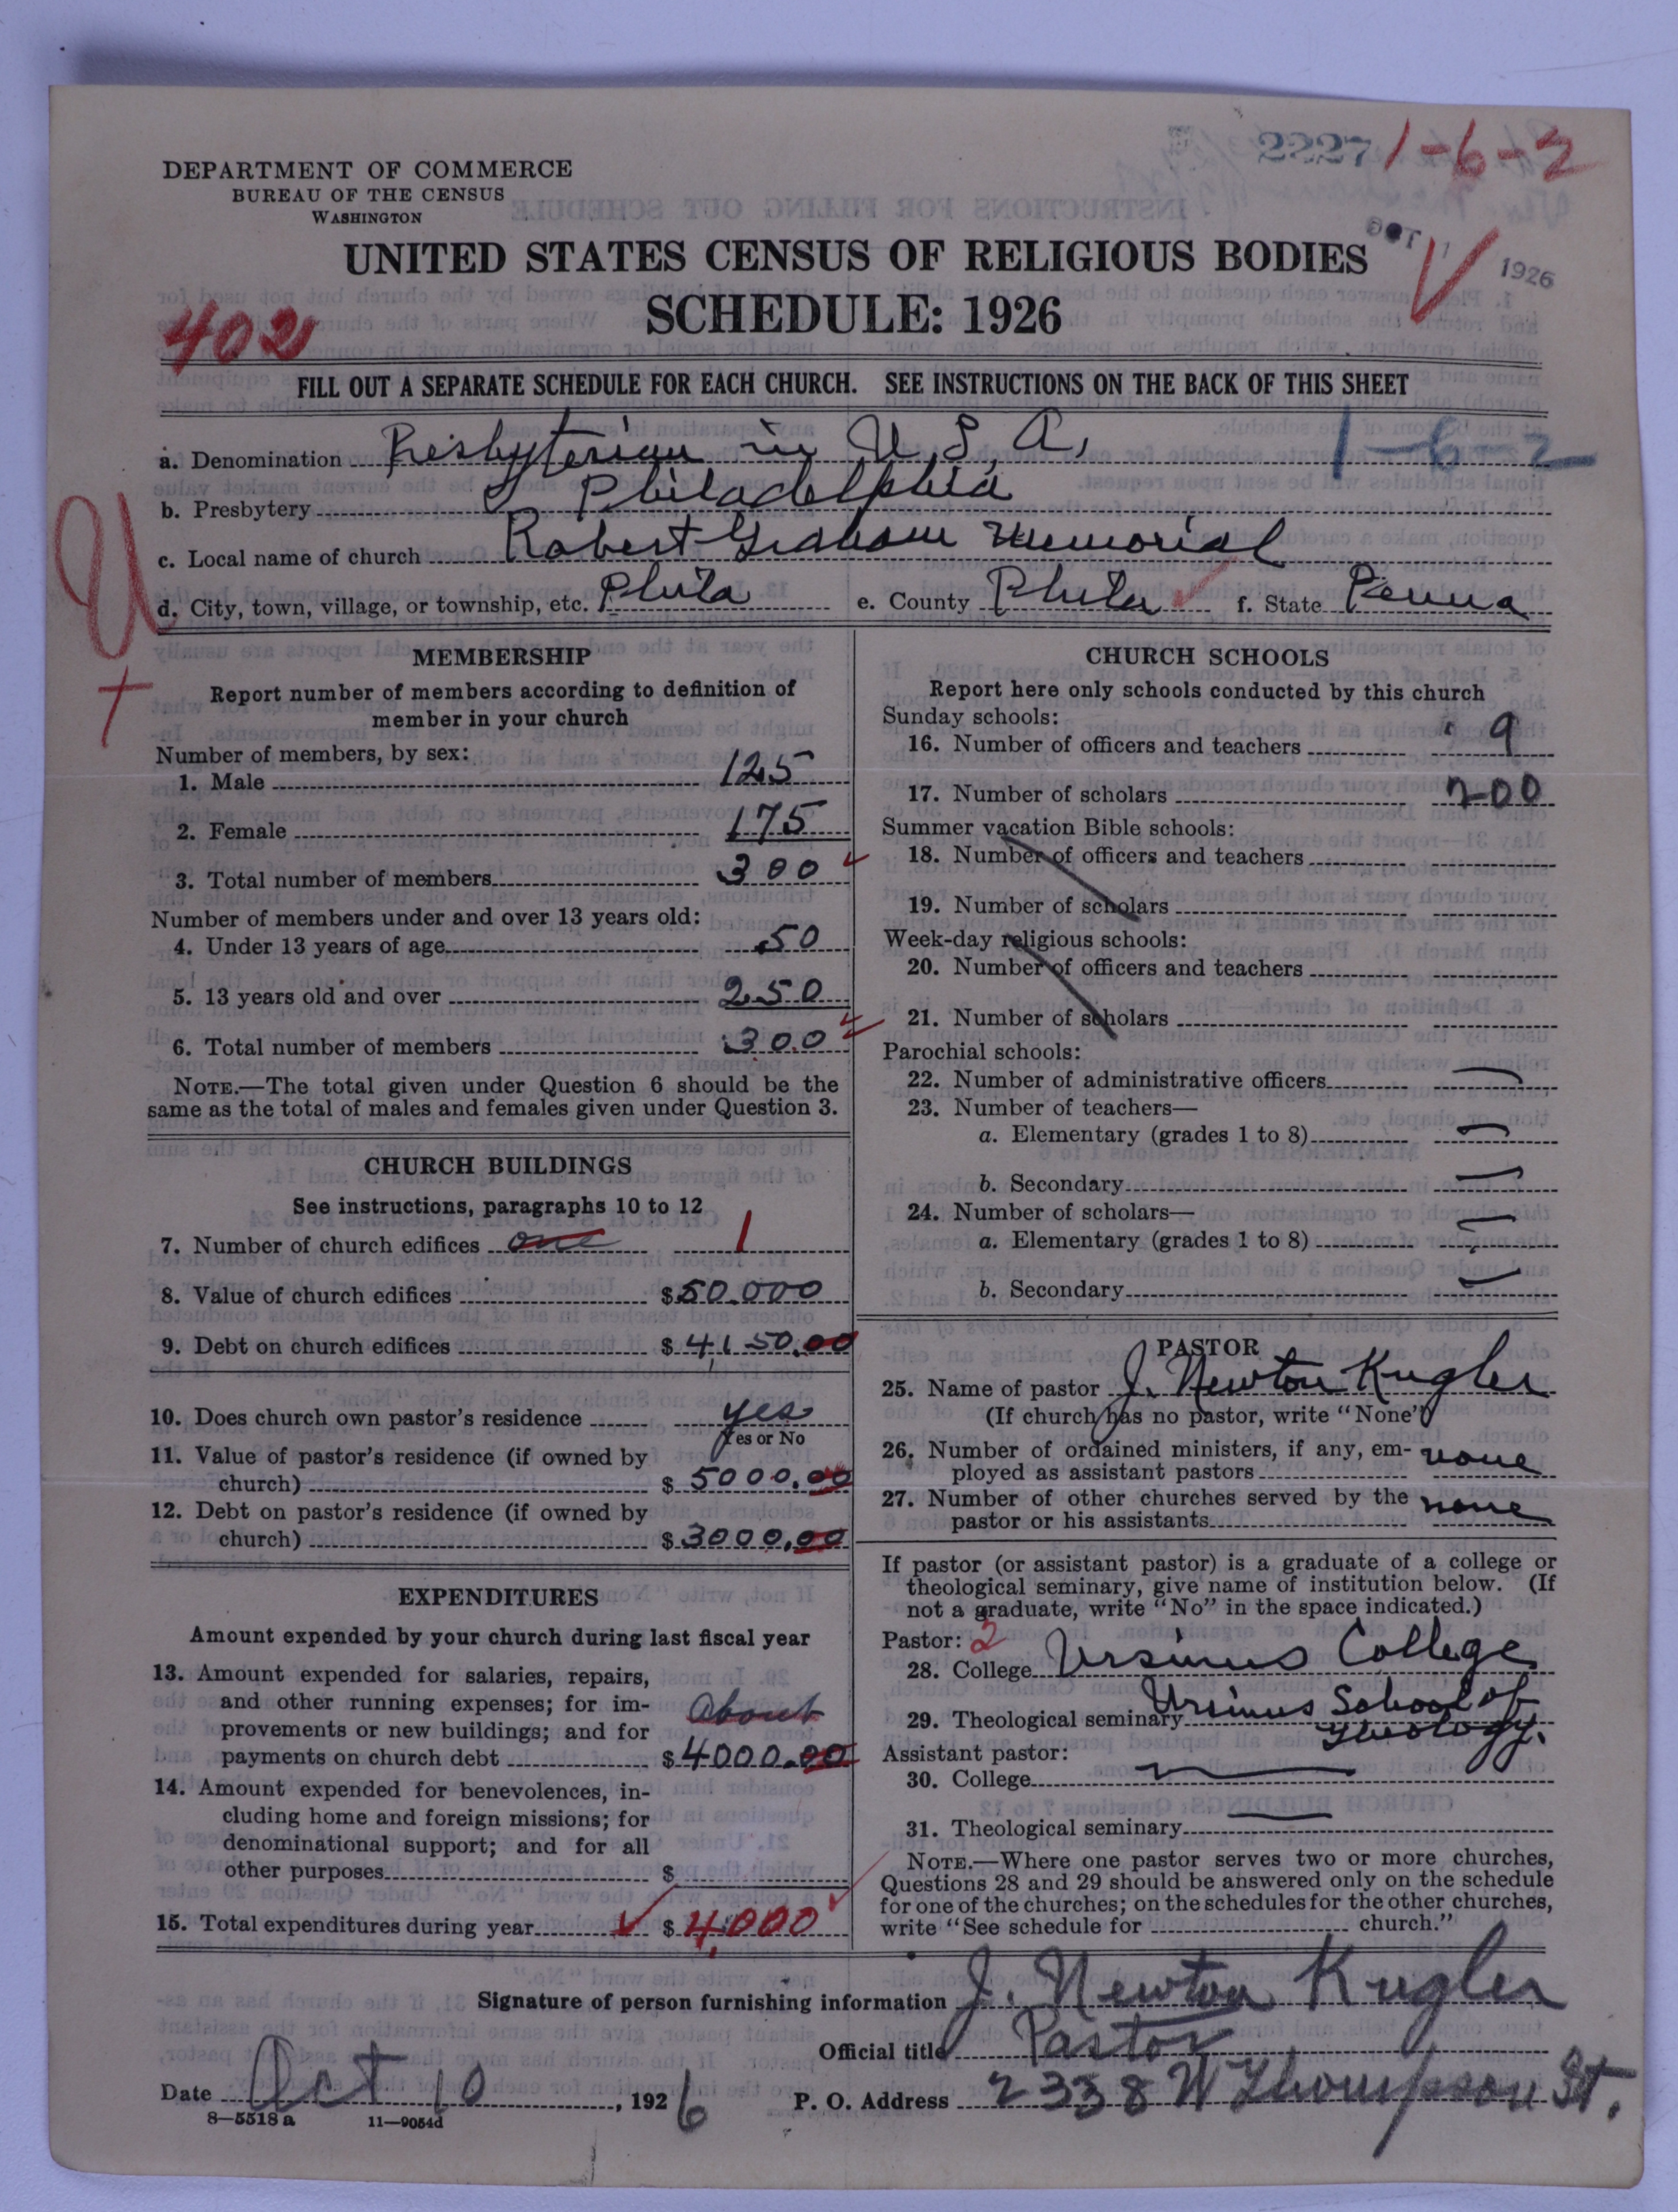 2227 1-6-2
DEPARTMENT OF COMMERCE
BUREAU OF THE CENSUS
WASHINGTON
OCT 1 1926
UNITED STATES CENSUS OF RELIGIOUS BODIES
SCHEDULE: 1926
402
FILL OUT A SEPARATE SCHEDULE FOR EACH CHURCH. SEE INSTRUCTIONS ON THE BACK OF THIS SHEET
a. Denomination Presbyterian in U.S.A. 1-6-2
b. Presbytery Philadelphia
c. Local name of church Robert Graham Memorial
d. City, town, village, or township, etc. Phila e. County Phila f. State Penna
U
MEMBERSHIP
Report number of members according to definition of
member in your church
Number of members, by sex:
1. Male 125
2. Female 175
3. Total number of members 300
Number of members under and over 13 years old:
4. Under 13 years of age 50
5. 13 years old and over 250
6. Total number of members 300
NOTE.—The total given under Question 6 should be the
same as the total of males and females given under Question 3.
CHURCH BUILDINGS
See instructions, paragraphs 10 to 12
7. Number of church edifices one 1
8. Value of church edifices $50.000
9. Debt on church edifices $4,150.00
10. Does church own pastor's residence yes
Yes or No
11. Value of pastor's residence (if owned by
church) $5000.00
12. Debt on pastor's residence (if owned by
church) $3000.00
EXPENDITURES
Amount expended by your church during last fiscal year
13. Amount expended for salaries, repairs,
and other running expenses; for im-
provements or new buildings; and for
payments on church debt About $4000.00
14. Amount expended for benevolences, in-
cluding home and foreign missions; for
denominational support; and for all
other purposes $
15. Total expenditures during year $4,000
CHURCH SCHOOLS
Report here only schools conducted by this church
Sunday schools:
16. Number of officers and teachers 9
17. Number of scholars 200
Summer vacation Bible schools:
18. Number of officers and teachers
19. Number of scholars
Week-day religious schools:
20. Number of officers and teachers
21. Number of scholars
Parochial schools:
22. Number of administrative officers
23. Number of teachers—
a. Elementary (grades 1 to 8)
b. Secondary
24. Number of scholars—
a. Elementary (grades 1 to 8)
b. Secondary
PASTOR
25. Name of pastor J. Newton Kugler
(If church has no pastor, write "None")
26. Number of ordained ministers, if any, em-
ployed as assistant pastors none
27. Number of other churches served by the
pastor or his assistants none
If pastor (or assistant pastor) is a graduate of a college or
theological seminary, give name of institution below. (If
not a graduate, write "No" in the space indicated.)
Pastor: 2
28. College Ursinus College
29. Theological seminary Ursinus School of
Theology.
Assistant pastor:
30. College
31. Theological seminary
NOTE.—Where one pastor serves two or more churches,
Questions 28 and 29 should be answered only on the schedule
for one of the churches; on the schedules for the other churches,
write "See schedule for church."
Signature of person furnishing information J. Newton Kugler
Official title Pastor
Date Oct 10, 1926 P. O. Address 2338 W Thompson St.
8—5518 a 11—9054d